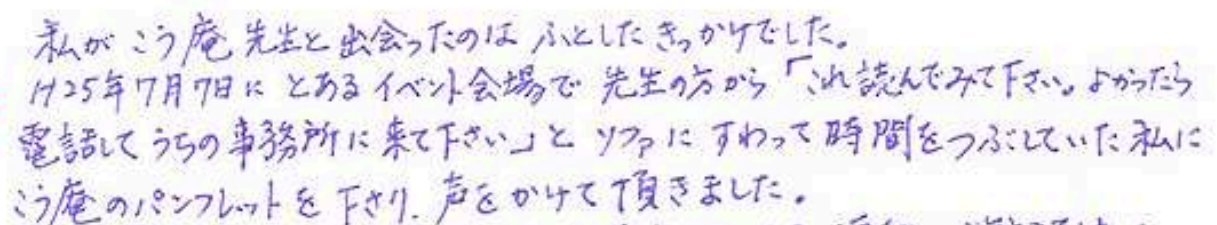 私がこう庵先生と出会ったのはふとしたきっかけでした。
H25年7月7日にとあるイベント会場で先生の方から「これ読んでみて下さい。よかったら
電話してうちの事務所に来て下さい」とソファにすわって時間をつぶしていた私に
こう庵のパンフレットを下さり、声をかけて頂きました。